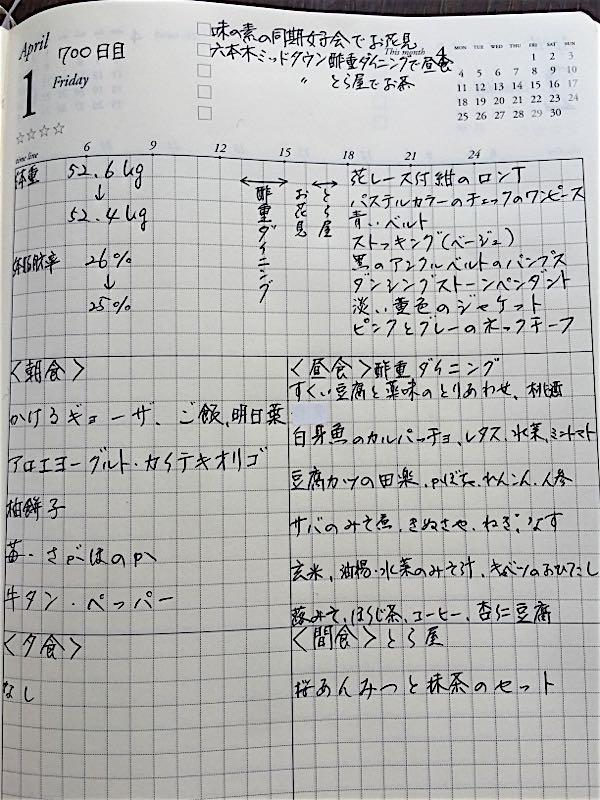 April
1
Friday
700日目
☆☆☆☆
味の素の同期女子会でお花見
六本木ミッドタウン酢重ダイニングで昼食
〃 とら屋でお茶
This month 4
MON TUE WED THU FRI SAT SUN
1 2 3
4 5 6 7 8 9 10
11 12 13 14 15 16 17
18 19 20 21 22 23 24
25 26 27 28 29 30
time line 6 9 12 15 18 21 24
体重 52.6kg
↓
52.4kg
体脂肪率 26%
↓
25%
酢重ダイニング
お花見
とら屋
花レース付紺のロンT
パステルカラーのチェックのワンピース
青いベルト
ストッキング(ベージュ)
黒のアンクルベルトのパンプス
ダンシングストーンペンダント
淡い黄色のジャケット
ピンクとグレーのネックチーフ
<朝食>
かけるギョーザ、ご飯、明日葉
アロエヨーグルト・カイテキオリゴ
柏餅子
苺・さがほのか
牛タン・ペッパー
<昼食>酢重ダイニング
すくい豆腐と薬味のとりあわせ、桃酒
白身魚のカルパッチョ、レタス、水菜、ミニトマト
豆腐カツの田楽、かぼちゃ、れんこん、人参
サバのみそ煮、きぬさや、ねぎ、なす
玄米、油揚・水菜のみそ汁、キャベツのおひたし
蕗みそ、ほうじ茶、コーヒー、杏仁豆腐
<夕食>
なし
<間食>とら屋
桜あんみつと抹茶のセット